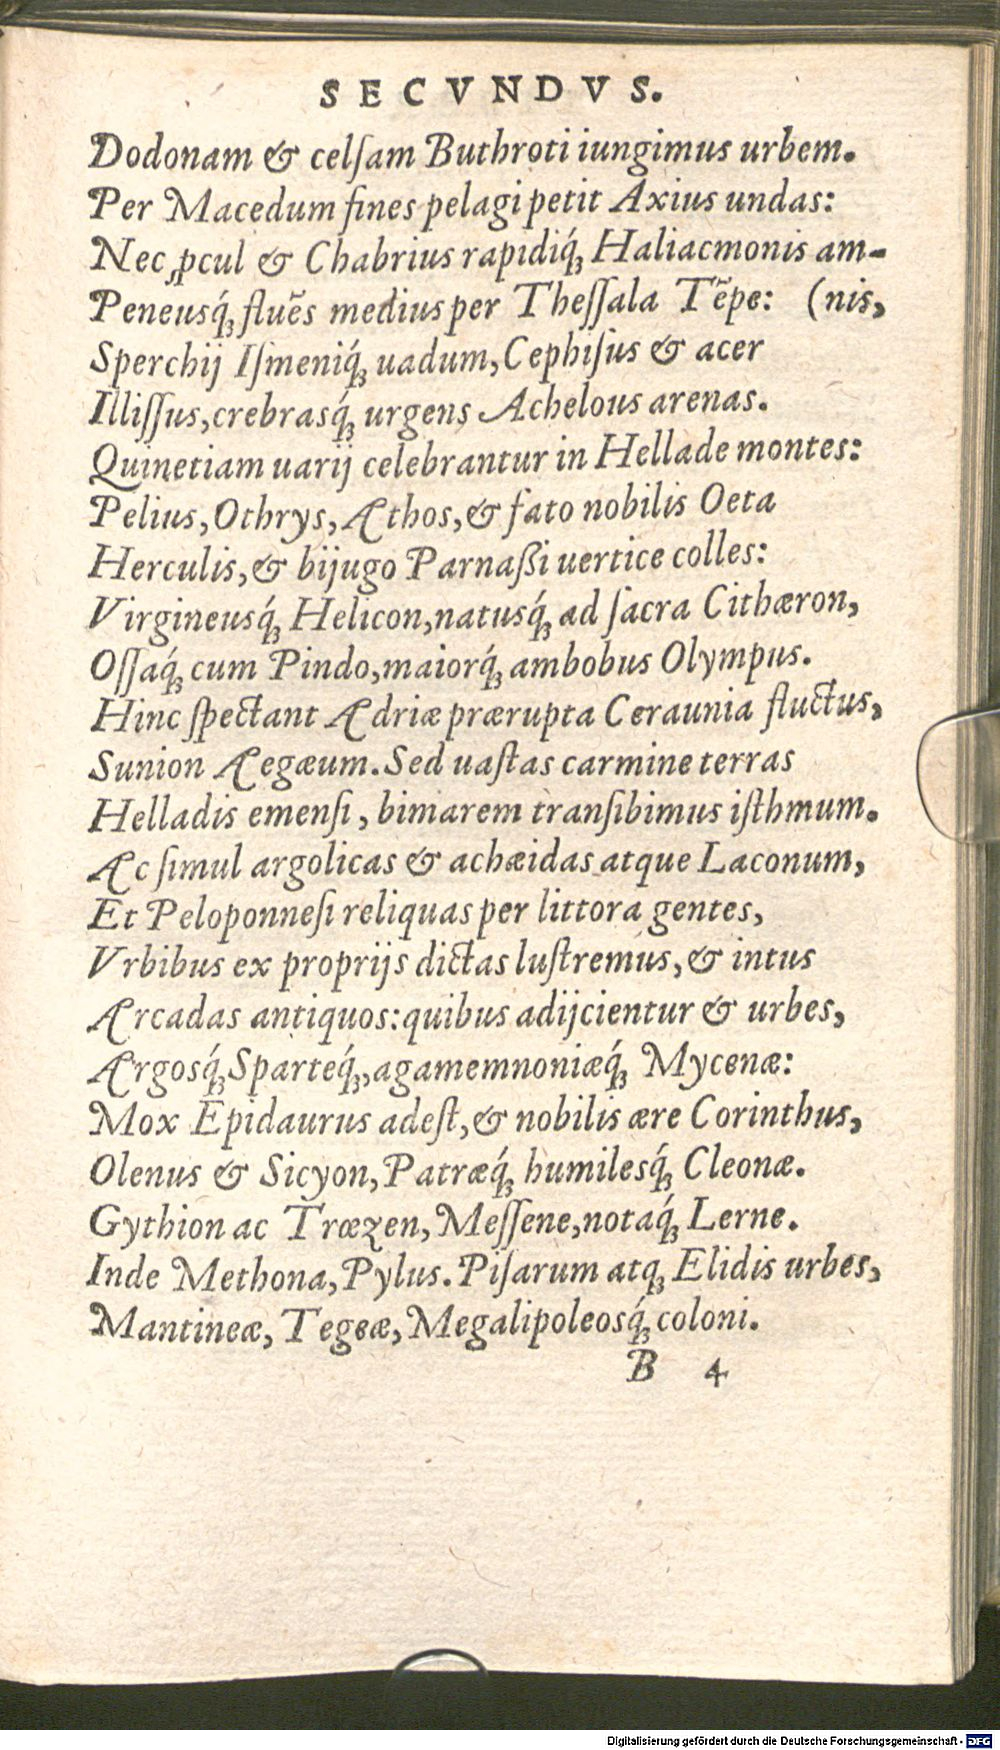 SECVNDVS.
Dodonam & celſam Buthroti iungimus urbem.
Per Macedum fines pelagi petit Axius undas:
Nec ꝓcul & Chabrius rapidiq́ꝫ Haliacmonis am-
Peneusq́ꝫ fluẽs medius per Theſſala Tẽpe: (nis,
Sperchij Iſmeniq́ꝫ uadum, Cephiſus & acer
Illiſſus, crebrasq́ꝫ urgens Achelous arenas.
Quinetiam uarij celebrantur in Hellade montes:
Pelius, Othrys, Athos, & fato nobilis Oeta
Herculis, & bijugo Parnaßi uertice colles:
Virgineusq́ꝫ Helicon, natusq́ꝫ ad ſacra Cithæron,
Oſſaq́ꝫ cum Pindo, maiorq́ꝫ ambobus Olympus.
Hinc ſpectant Adriæ prærupta Ceraunia fluctus,
Sunion Aegæum. Sed uaſtas carmine terras
Helladis emenſi, bimarem tranſibimus iſthmum.
Ac ſimul argolicas & achæidas atque Laconum,
Et Peloponneſi reliquas per littora gentes,
Vrbibus ex proprijs dictas luſtremus, & intus
Arcadas antiquos: quibus adijcientur & urbes,
Argosq́ꝫ Sparteq́ꝫ, agamemnoniæq́ꝫ Mycenæ:
Mox Epidaurus adeſt, & nobilis ære Corinthus,
Olenus & Sicyon, Patræq́ꝫ humilesq́ꝫ Cleonæ.
Gythion ac Trœzen, Meſſene, notaq́ꝫ Lerne.
Inde Methona, Pylus. Piſarum atqꝫ Elidis urbes,
Mantineæ, Tegeæ, Megalipoleosq́ꝫ coloni.
B 4
Digitalisierung gefördert durch die Deutsche Forschungsgemeinschaft - DFG